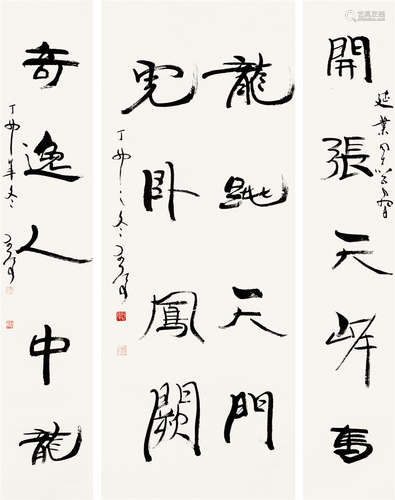 開張天岸馬
延業同志
龍跳天門
虎卧鳳闕
丁卯之冬
奇逸人中龍
丁卯年冬